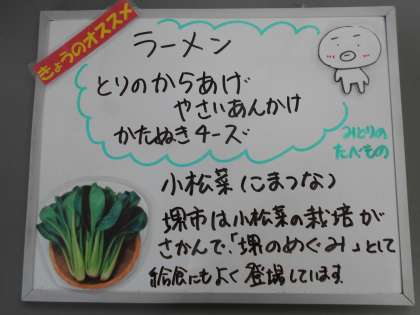 きょうのオススメ
ラーメン
とりのからあげ
やさいあんかけ
かたぬきチーズ
みどりの
たべもの
小松菜(こまつな)
堺市は小松菜の栽培が
さかんで、「堺のめぐみ」として
給食にもよく登場しています